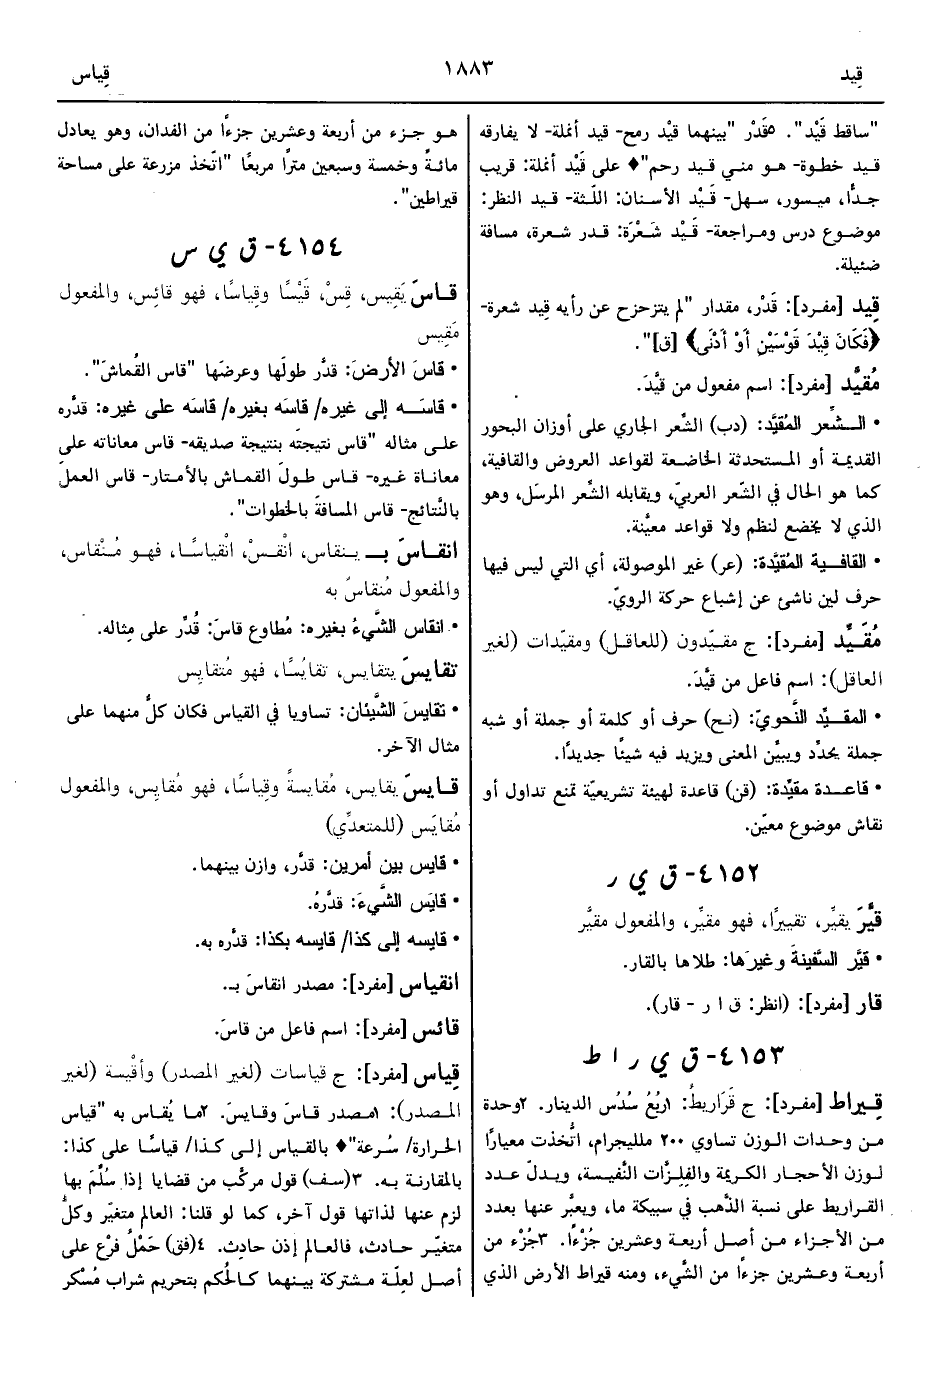 قيد
١٨٨٣
قِياس
"ساقط قَيْد". ٥قَدْر "بينهما قيْد رمح- قيد أنملة- لا يفارقه
قيد خطوة- هو مني قيد رحم"♦ على قَيْد أنملة: قريب
جدًّا، ميسور، سهل- قَيْد الأسنان: اللّثة- قيد النظر:
موضوع درس ومراجعة- قَيْد شَعْرَة: قدر شعرة، مسافة
ضئيلة.
قِيد [مفرد]: قَدْر، مقدار "لم يتزحزح عن رأيه قِيد شعرة-
﴿فَكَانَ قِيْدَ قَوْسَيْنِ أَوْ أَدْنَى﴾ [ق]".
مُقيَّد [مفرد]: اسم مفعول من قيَّدَ.
• الشِّعر المُقيَّد: (دب) الشّعر الجاري على أوزان البحور
القديمة أو المستحدثة الخاضعة لقواعد العروض والقافية،
كما هو الحال في الشّعر العربيّ، ويقابله الشّعر المرسَل، وهو
الذي لا يخضع لنظم ولا قواعد معيَّنة.
• القافية المُقيَّدة: (عر) غير الموصولة، أي التي ليس فيها
حرف لين ناشئ عن إشباع حركة الرويّ.
مُقيِّد [مفرد]: ج مقيّدون (للعاقل) ومقيّدات (لغير
العاقل): اسم فاعل من قيَّدَ.
• المقيِّد النَّحويّ: (نح) حرف أو كلمة أو جملة أو شبه
جملة يحدّد ويبيِّن المعنى ويزيد فيه شيئًا جديدًا.
• قاعدة مقيِّدة: (قن) قاعدة لهيئة تشريعيّة تمنع تداول أو
نقاش موضوع معيّن.
٤١٥٢- ق ي ر
قيَّرَ يقيِّر، تقييرًا، فهو مقيِّر، والمفعول مقيَّر
• قيَّر السَّفينةَ وغيرَها: طلاها بالقار.
قار [مفرد]: (انظر: ق ا ر - قار).
٤١٥٣- ق ي ر ا ط
قِيراط [مفرد]: ج قَرَاريطُ: ١رُبُعُ سُدُس الدينار. ٢وحدة
من وحدات الوزن تساوي ٢٠٠ ملليجرام، اتُّخذت معيارًا
لوزن الأحجار الكريمة والفِلِزَّات النَّفيسة، ويدلّ عدد
القراريط على نسبة الذَّهب في سبيكة ما، ويعبَّر عنها بعدد
من الأجزاء من أصل أربعة وعشرين جُزْءاً. ٣جُزْء من
أربعة وعشرين جزءاً من الشَّيء، ومنه قيراط الأرض الذي
هو جزء من أربعة وعشرين جزءًا من الفدان، وهو يعادل
مائةً وخمسة وسبعين مترًا مربعًا "اتّخذ مزرعة على مساحة
قيراطين".
٤١٥٤- ق ي س
قاسَ يَقِيس، قِسْ، قَيْسًا وقِياسًا، فهو قائِس، والمفعول
مَقِيس
• قاسَ الأرضَ: قدَّر طولَها وعرضَها "قاس القُماشَ".
• قاسَه إلى غيره/ قاسَه بغيره/ قاسَه على غيره: قدَّره
على مثاله "قاس نتيجتَه بنتيجة صديقه- قاس معاناته على
معاناة غيره- قاس طولَ القماش بالأمتار- قاس العملَ
بالنَّتائج- قاس المسافةَ بالخطوات".
انقاسَ بـ ينقاس، انْقَسْ، انْقياسًا، فهو مُنْقاس،
والمفعول مُنقاسٌ به
• انقاس الشَّيءُ بغيره: مُطاوع قاسَ: قُدِّر على مِثاله.
تقايسَ يتقايس، تقايُسًا، فهو مُتقايِس
• تقايسَ الشَّيئان: تساويا في القياس فكان كلٌّ منهما على
مثال الآخر.
قايسَ يقايس، مُقايسةً وقِياسًا، فهو مُقايِس، والمفعول
مُقايَس (للمتعدِّي)
• قايس بين أمرين: قدَّر، وازن بينهما.
• قايَس الشَّيءَ: قدَّرهُ.
• قايسه إلى كذا/ قايسه بكذا: قدَّره به.
انقياس [مفرد]: مصدر انقاسَ بـ.
قائس [مفرد]: اسم فاعل من قاسَ.
قِياس [مفرد]: ج قياسات (لغير المصدر) وأقْيسة (لغير
المصدر): ١مصدر قاسَ وقايسَ. ٢ما يُقاس به "قياس
الحرارة/ سُرعة"♦ بالقياس إلى كذا/ قياسًا على كذا:
بالمقارنة به. ٣(سف) قول مركّب من قضايا إذا سُلِّمَ بها
لزم عنها لذاتها قول آخر، كما لو قلنا: العالم متغيّر وكلُّ
متغيّر حادث، فالعالم إذن حادِث. ٤(فق) حَمْلُ فرْع على
أصل لعِلّة مشتركة بينهما كالحُكم بتحريم شراب مُسْكر